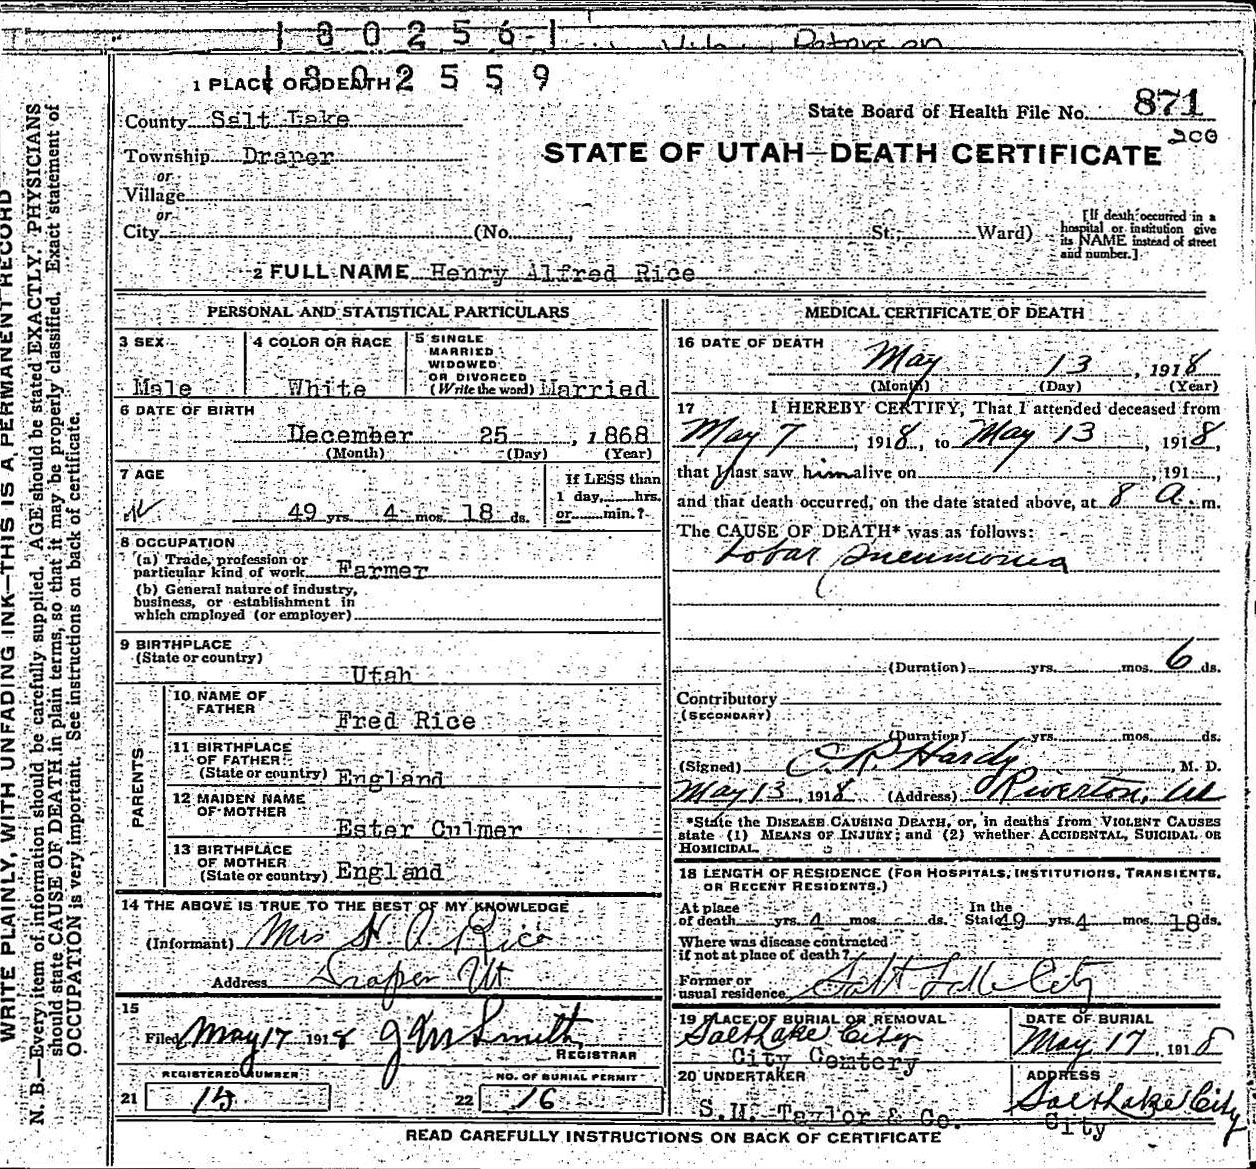 1802561
1802559
1 PLACE OF DEATH
State Board of Health File No. 871
200
County Salt Lake
Township Draper
STATE OF UTAH—DEATH CERTIFICATE
or
Village
or
City (No. , St.; Ward)
[If death occurred in a
hospital or institution give
its NAME instead of street
and number.]
2 FULL NAME Henry Alfred Rice
PERSONAL AND STATISTICAL PARTICULARS
3 SEX
Male
4 COLOR OR RACE
White
5 SINGLE
MARRIED
WIDOWED
OR DIVORCED
(Write the word) Married
6 DATE OF BIRTH
December 25, 1868
(Month) (Day) (Year)
7 AGE
49 yrs. 4 mos. 18 ds.
If LESS than
1 day, hrs.
or min.?
8 OCCUPATION
(a) Trade, profession or
particular kind of work Farmer
(b) General nature of industry,
business, or establishment in
which employed (or employer)
9 BIRTHPLACE
(State or country)
Utah
PARENTS
10 NAME OF
FATHER
Fred Rice
11 BIRTHPLACE
OF FATHER
(State or country) England
12 MAIDEN NAME
OF MOTHER
Ester Culmer
13 BIRTHPLACE
OF MOTHER
(State or country) England
14 THE ABOVE IS TRUE TO THE BEST OF MY KNOWLEDGE
(Informant) Mrs H A Rice
Address Draper Ut
15
Filed May 17 1918 J M Smith
REGISTRAR
REGISTERED NUMBER
NO. OF BURIAL PERMIT
21
22 16
MEDICAL CERTIFICATE OF DEATH
16 DATE OF DEATH
May 13, 1918
(Month) (Day) (Year)
17 I HEREBY CERTIFY, That I attended deceased from
May 7, 1918, to May 13, 1918,
that I last saw him alive on , 191 ,
and that death occurred, on the date stated above, at 8 A. m.
The CAUSE OF DEATH* was as follows:
Lobar pneumonia
(Duration) yrs. mos. 6 ds.
Contributory
(SECONDARY)
(Duration) yrs. mos. ds.
(Signed) C. R Hardy, M. D.
May 13, 1918 (Address) Riverton, Ut
*State the DISEASE CAUSING DEATH, or, in deaths from VIOLENT CAUSES
state (1) MEANS OF INJURY; and (2) whether ACCIDENTAL, SUICIDAL OR
HOMICIDAL.
18 LENGTH OF RESIDENCE (FOR HOSPITALS, INSTITUTIONS, TRANSIENTS,
OR RECENT RESIDENTS.)
At place
of death yrs. 4 mos. ds.
In the
State 49 yrs. 4 mos. 18 ds.
Where was disease contracted
if not at place of death?
Former or
usual residence Salt Lake City
19 PLACE OF BURIAL OR REMOVAL
Salt Lake City
City Cemtery
DATE OF BURIAL
May 17, 1918
20 UNDERTAKER
S.M. Taylor & Co.
ADDRESS
Salt Lake City
City
READ CAREFULLY INSTRUCTIONS ON BACK OF CERTIFICATE
WRITE PLAINLY, WITH UNFADING INK—THIS IS A PERMANENT RECORD
N. B.—Every item of information should be carefully supplied. AGE should be stated EXACTLY. PHYSICIANS
should state CAUSE OF DEATH in plain terms, so that it may be properly classified. Exact statement of
OCCUPATION is very important. See instructions on back of certificate.